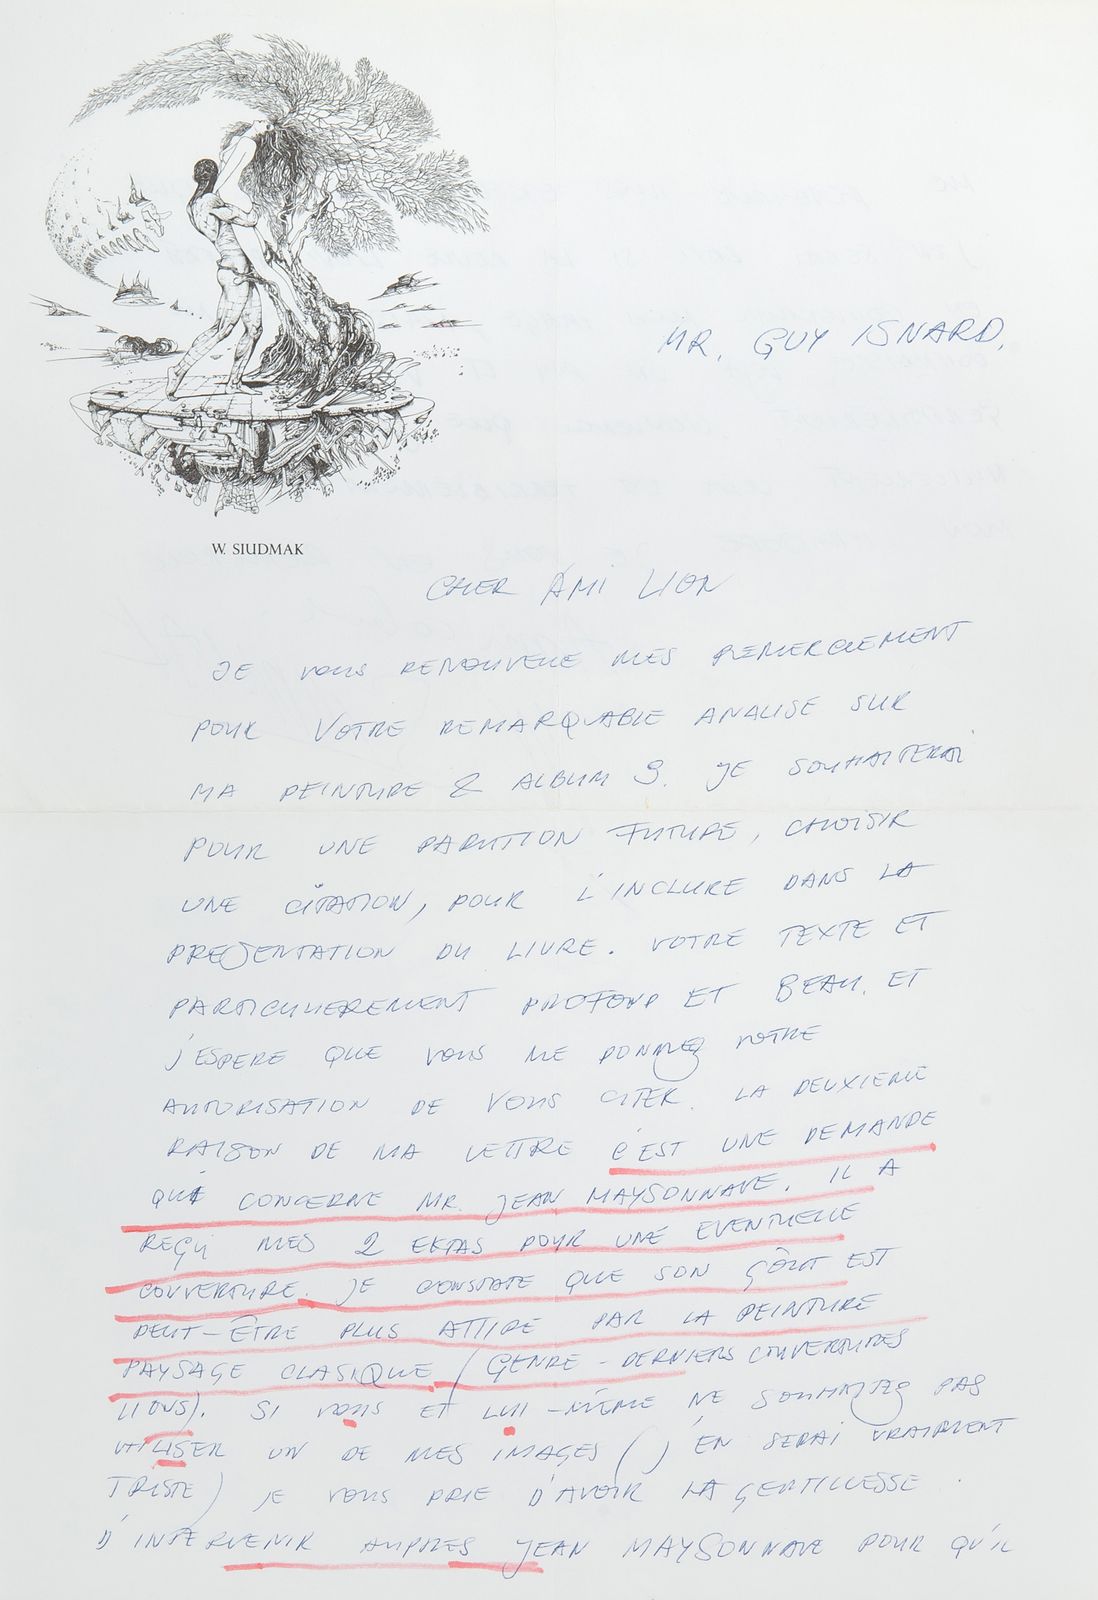 MR. GUY ISNARD.
W. SIUDMAK
CHER AMI LION
JE VOUS RENOUVELLE MES REMERCIEMENT
POUR VOTRE REMARQUABLE ANALISE SUR
MA PEINTURE & ALBUM 3. JE SOUHAITERAI
POUR UNE PARUTION FUTURE, CHOISIR
UNE CITATION, POUR L'INCLURE DANS LA
PRESENTATION DU LIVRE. VOTRE TEXTE ET
PARTICULIEREMENT PROFOND ET BEAU. ET
J'ESPERE QUE VOUS ME DONNEZ VOTRE
AUTORISATION DE VOUS CITER. LA DEUXIEME
RAISON DE MA LETTRE C'EST UNE DEMANDE
QUI CONCERNE MR. JEAN MAYSONNAVE. IL A
REÇU MES 2 EKTAS POUR UNE EVENTUELLE
COUVERTURE. JE CONSTATE QUE SON GOÛT EST
PEUT-ÊTRE PLUS ATTIRE PAR LA PEINTURE
PAYSAGE CLASIQUE (GENRE - DERNIERS COUVERTURES
LIONS). SI VOUS ET LUI-MÊME NE SOUHAITEZ PAS
UTILISER UN DE MES IMAGES (J'EN SERAI VRAIMENT
TRISTE) JE VOUS PRIE D'AVOIR LA GENTILLESSE
D'INTERVENIR AUPRES JEAN MAYSONNAVE POUR QU'IL